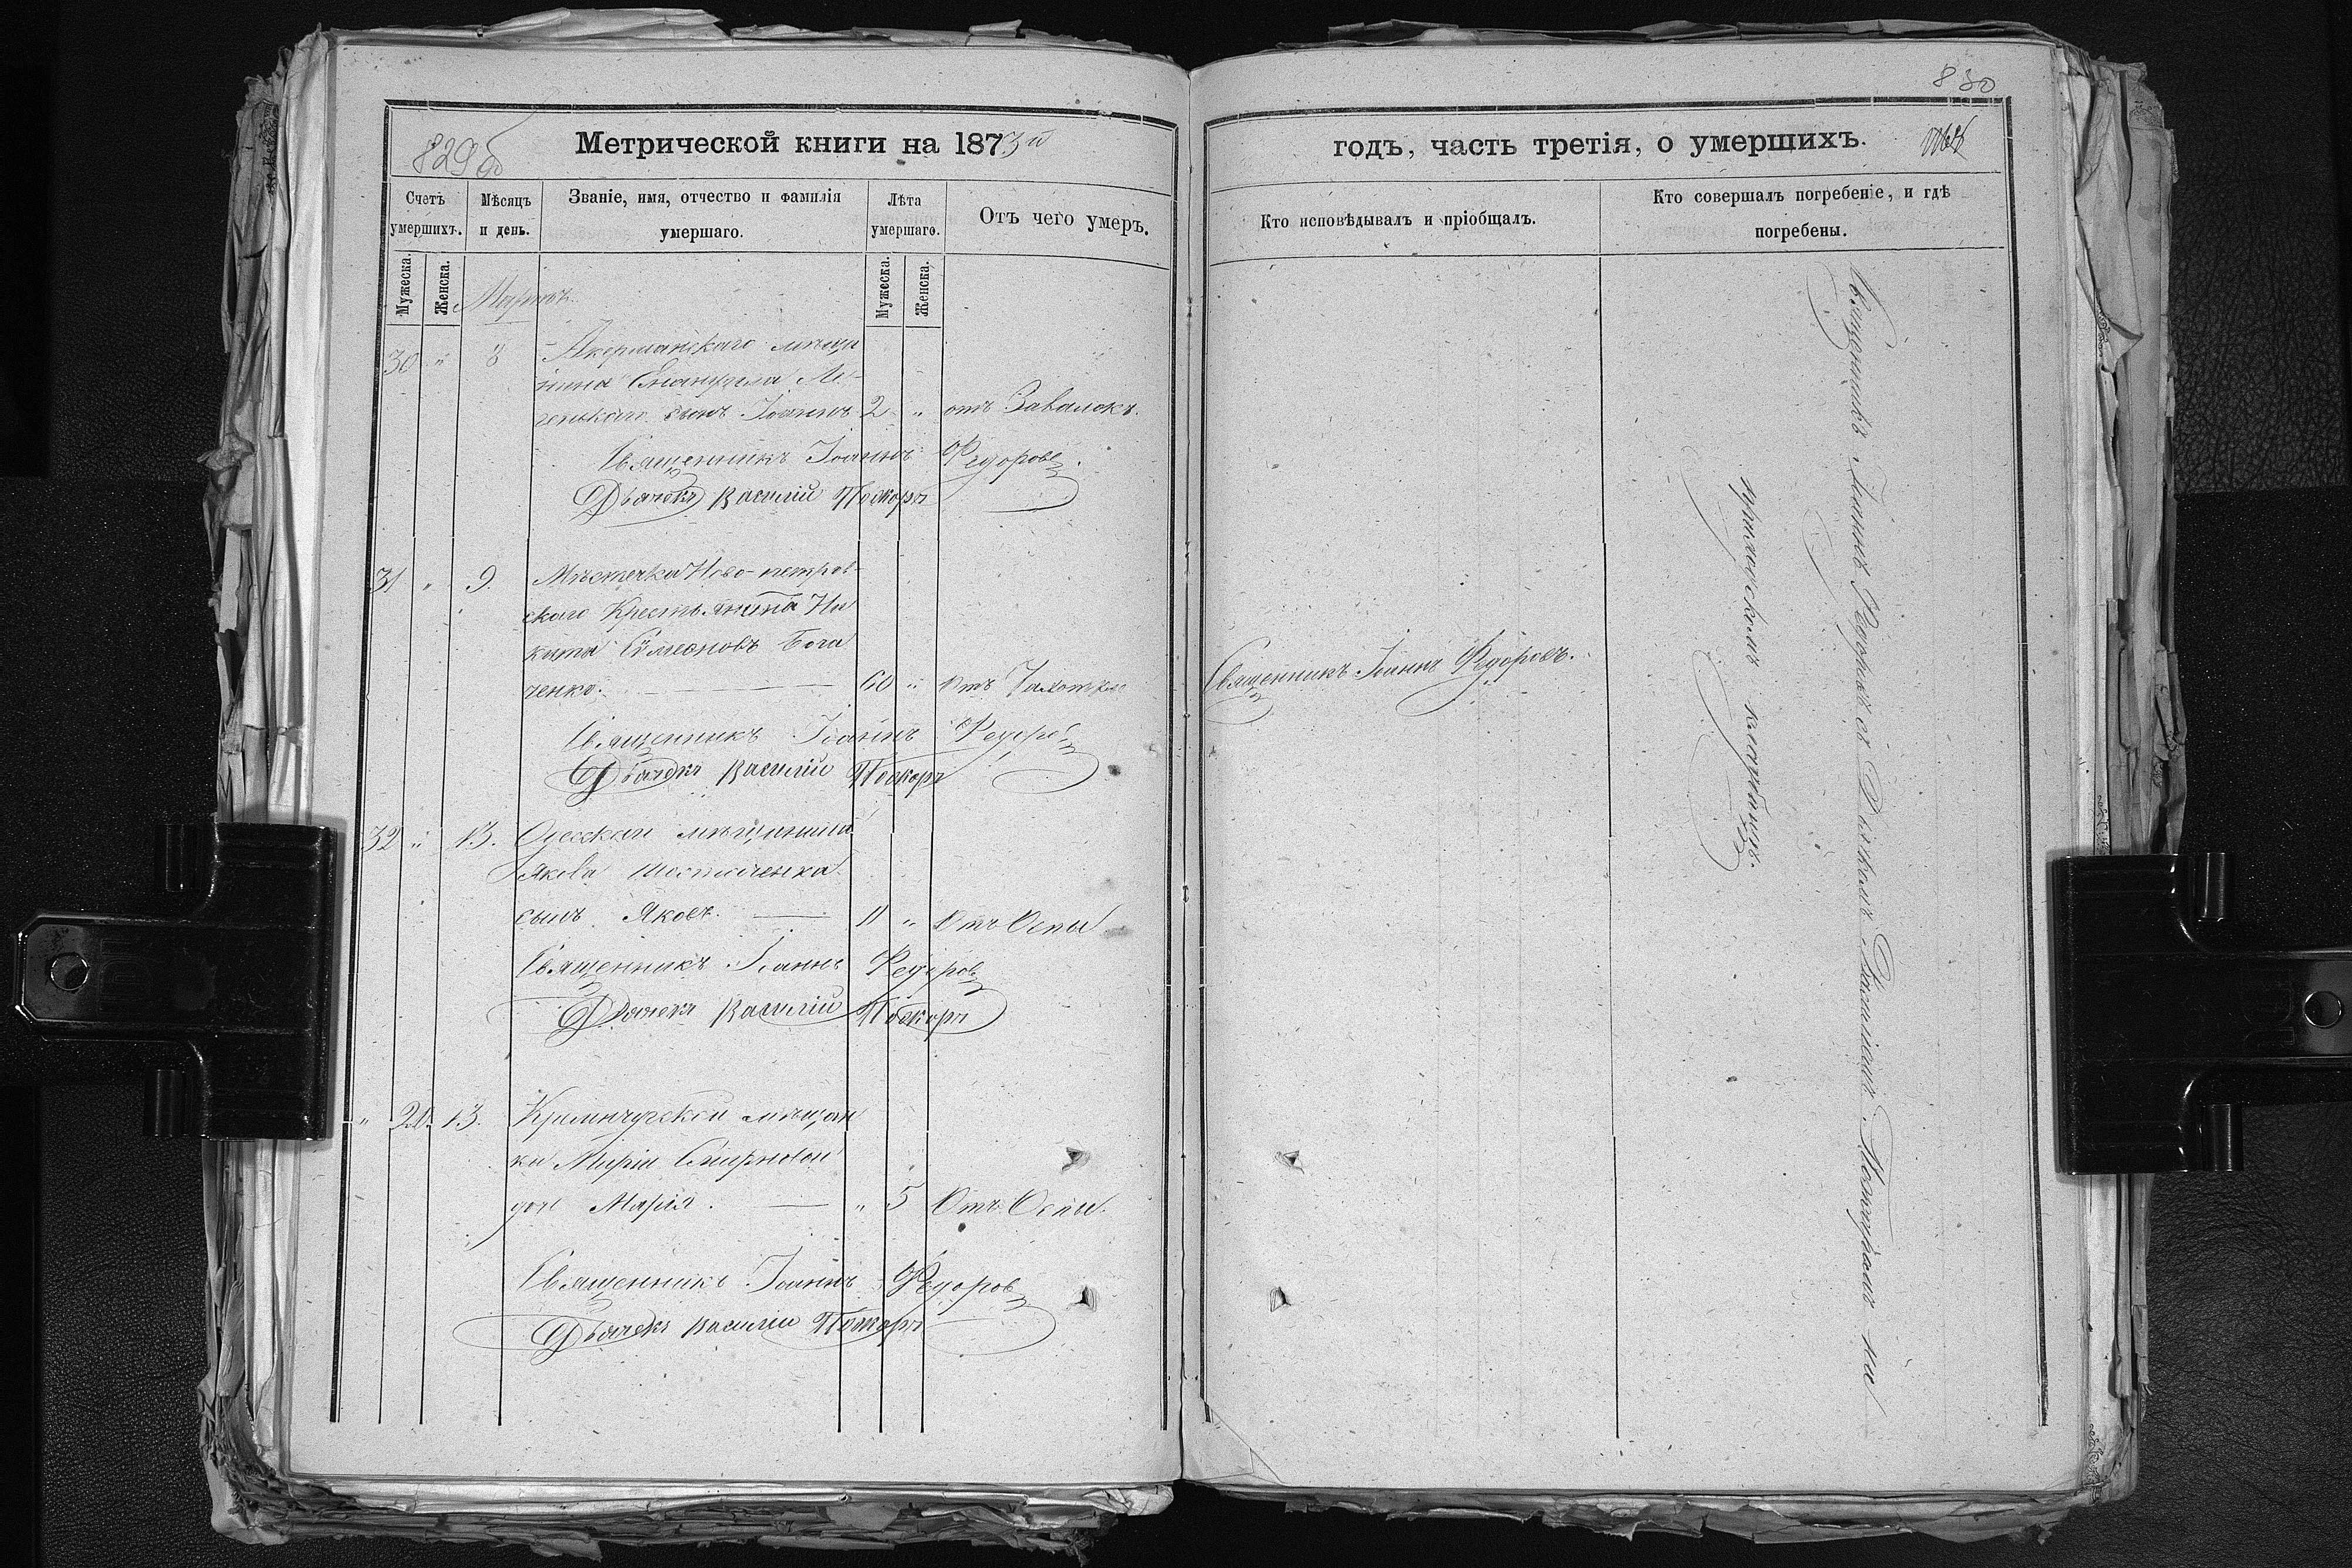 829 об
Метрической книги на 1873й
Счетъ умершихъ.
Мужеска.
Женска.
Мѣсяцъ и день.
Званіе, имя, отчество и фамилія умершаго.
Лѣта умершаго.
Мужеска.
Женска.
Отъ чего умеръ.
Мартъ.
30 " 8 Акерманскаго мѣща
нина Емануила
сынъ Іоаннъ 2 " отъ Завалокъ.
Священникъ Іоаннъ Федоровъ
Дьячекъ Василій
31 " 9. Мѣстечка Ново-петров-
скаго Крестьянинъ Ни
кита Симеоновъ Бога
ченко. 60 " Отъ Чахотки
Священникъ Іоаннъ Федоровъ
Дьячекъ Василій
32 " 13. Одесскаго мѣщанина
Якова
сынъ Яковъ. 11 " Отъ Оспы
Священникъ Іоаннъ Федоровъ
Дьячекъ Василій
" 21. 13. Кременчугской мѣщан
ки Маріи Смирновой
доч Марія. " 5 Отъ Оспы.
Священникъ Іоаннъ Федоровъ
Дьячекъ Василій
830
годъ, часть третія, о умершихъ.
Кто исповѣдывалъ и пріобщалъ.
Кто совершалъ погребеніе, и гдѣ
погребены.
Священникъ Іоаннъ Федоровъ.
Священникъ Іоаннъ Федоровъ съ Дьячкомъ Василіемъ на
приходскомъ кладбищѣ.